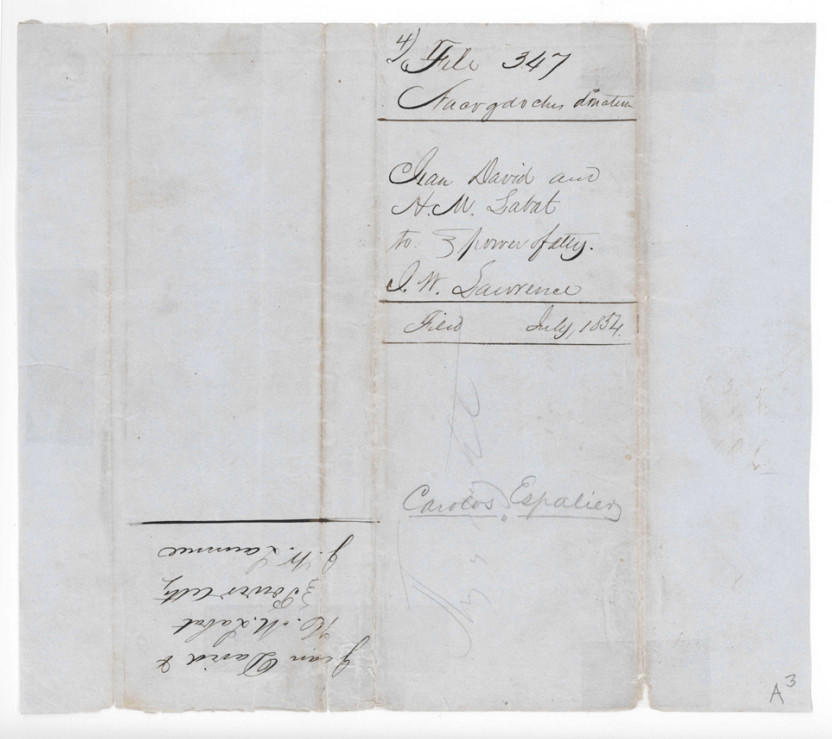 4)
File 347
Nacogdoches donation
Jean David and
H. M. Labat
to } power of atty.
J. W. Lawrence
Filed July, 1854.
Carolos Espalier
Jean David &
H. M. Labat
} Power Atty
J. W. Lawrence
A3